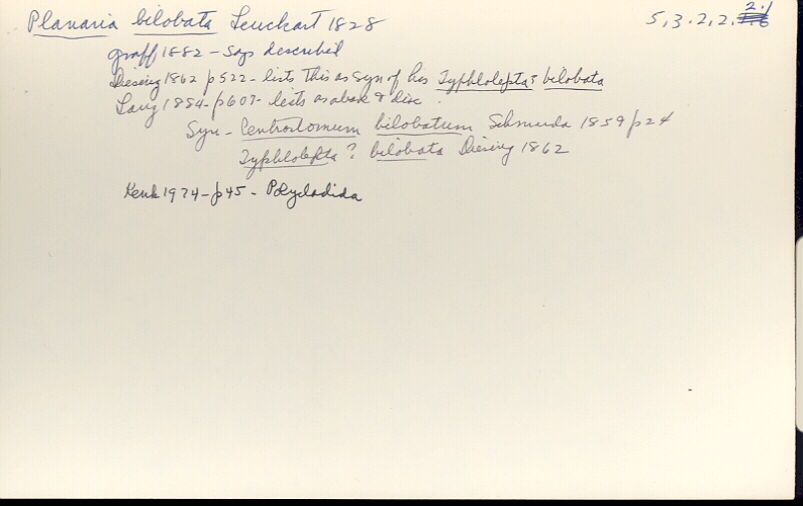 Planaria bilobata Leuckart 1828
5,3.2,2.2.1
Graff 1882 - Says described
Diesing 1862 p522 - lists this as syn of his Typhlolepta? bilobata
Lang 1884 - p607 - lists as above & disc.
Syn - Centrostomum bilobatum Schmarda 1859 p24
Typhlolepta? bilobata Diesing 1862
Kenk 1974 - p45 - Polycladida